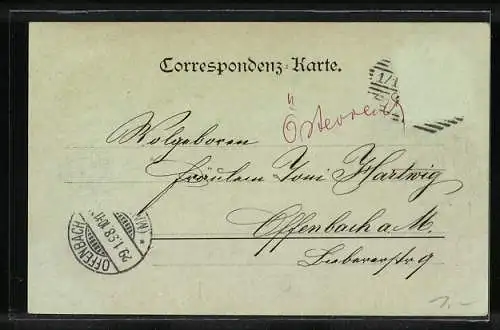 Correspondenz-Karte.
1/1
Österreich
Wolgeboren
Fräulein Toni Hartwig
Offenbach a M.
Biebererstr 9
OFFENBACH
29.1.98.
(MAIN)
1.-